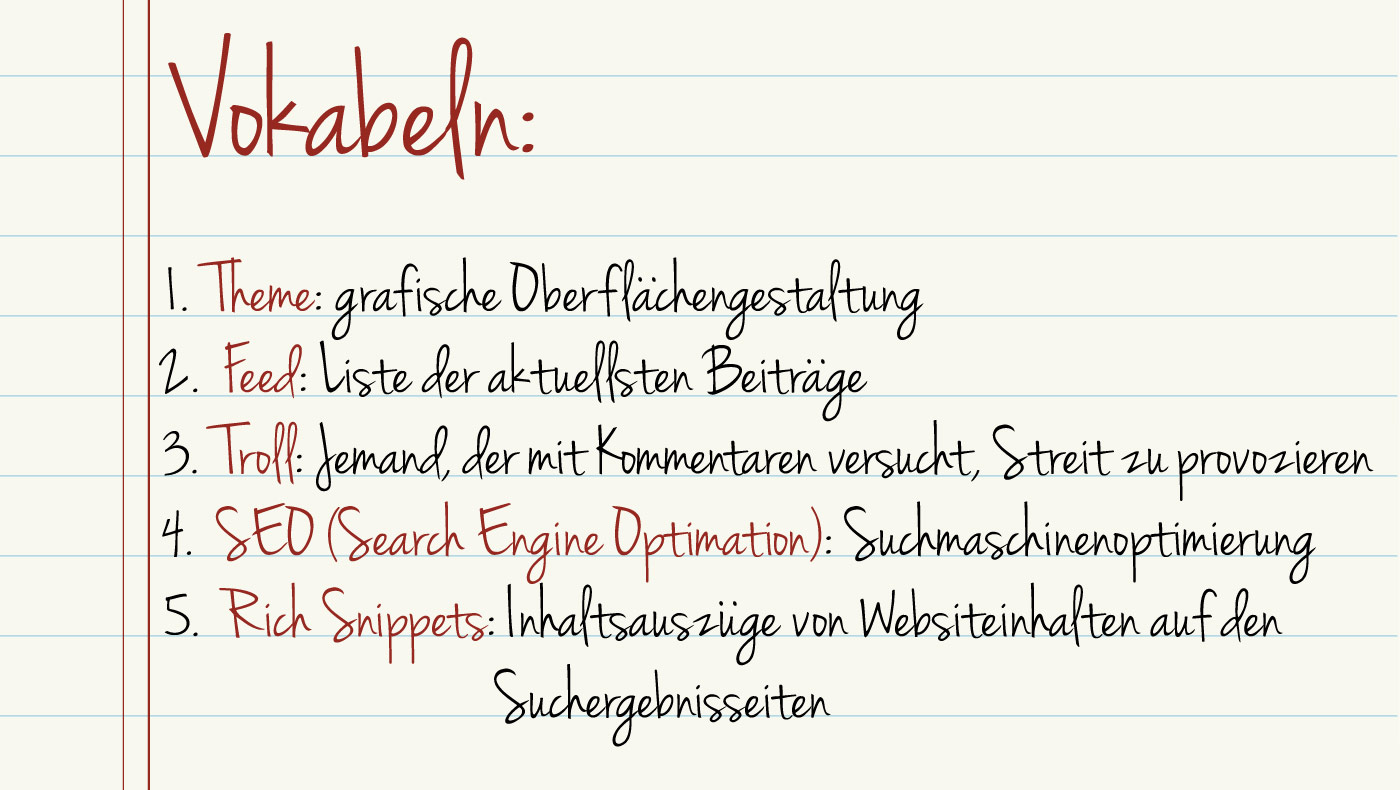 Vokabeln:
1. Theme: grafische Oberflächengestaltung
2. Feed: Liste der aktuellsten Beiträge
3. Troll: Jemand, der mit Kommentaren versucht, Streit zu provozieren
4. SEO (Search Engine Optimation): Suchmaschinenoptimierung
5. Rich Snippets: Inhaltsauszüge von Websiteinhalten auf den
Suchergebnisseiten